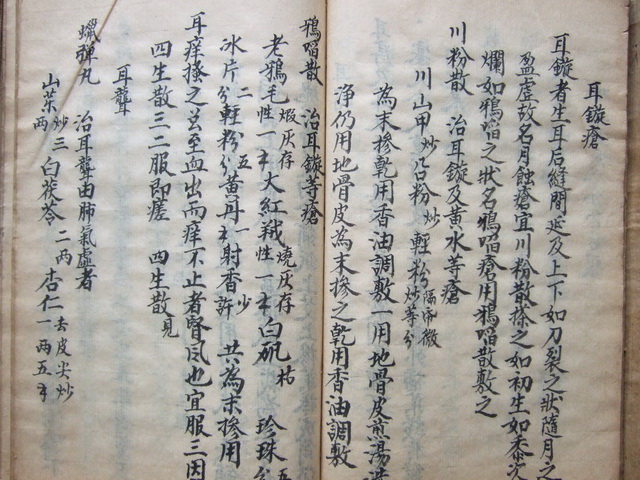 耳鏇瘡
耳鏇者生耳后縫間延及上下如刀裂之狀隨月之
盈虛故名月蝕瘡宜川粉散搽之如初生如黍次
爛如鴉啗之狀名鴉啗瘡用鴉啗散敷之
川粉散 治耳鏇及黃水等瘡
川山甲炒 呂粉炒 輕粉隔帋微炒等分
為末摻乾用香油調敷一用地骨皮煎湯洗
淨仍用地骨皮為末摻之乾用香油調敷
鴉啗散 治耳鏇等瘡
老鴉毛煆灰存性一 大紅羢燒灰存性一 白矾枯 珍珠五分
冰片二分 輕粉五分 黃丹一 射香少許 共為末摻用
耳痒搔之至血出而痒不止者腎風也宜服三因
四生散三二服即瘥 四生散見
耳聾
蠟彈丸 治耳聾由肺氣虛者
山茱炒三両 白茯苓二両 杏仁去皮尖炒一両五